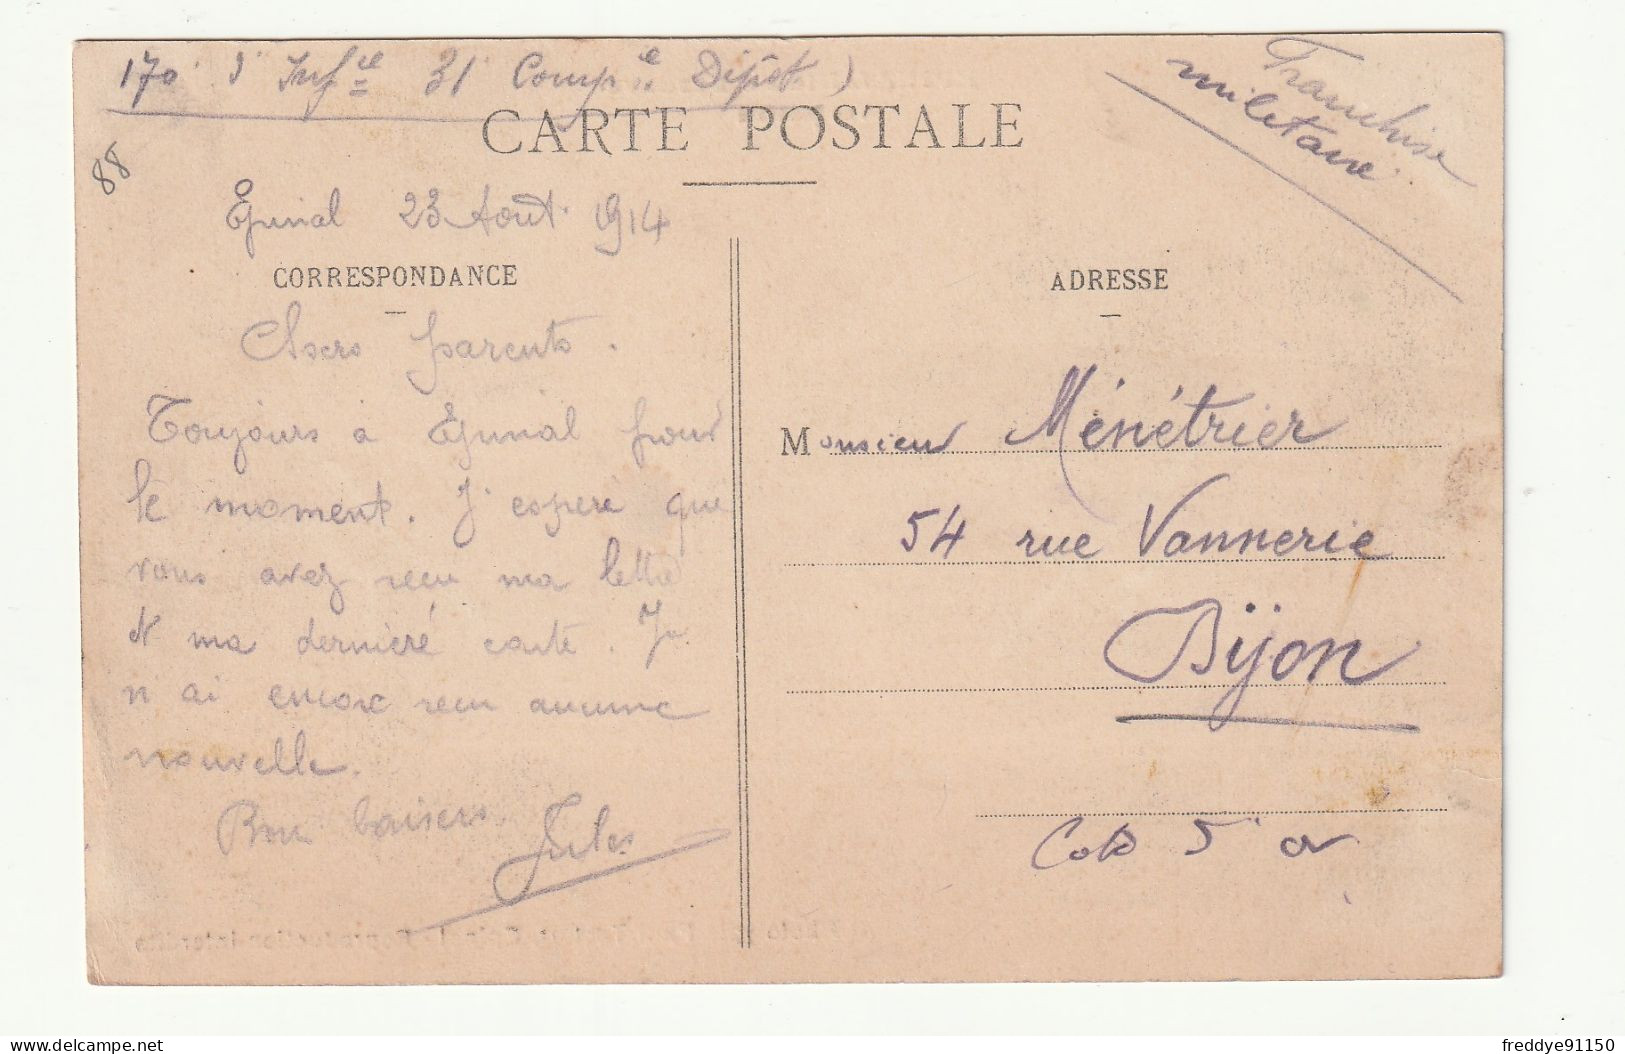 170 d'Inf ie 31 Comp ie Dépôt
Franchise
militaire
CARTE POSTALE
88
Epinal 23 Août 1914
CORRESPONDANCE
ADRESSE
Chers parents.
Toujours à Epinal pour
le moment. J'espere que
vous avez recu ma lettre
et ma derniere carte. Je
n'ai encore recu aucune
nouvelle.
Bon baisers.
Jules
Monsieur Ménétrier
54 rue Vannerie
Dijon
Cote d'or
freddye91150
delcampe.net